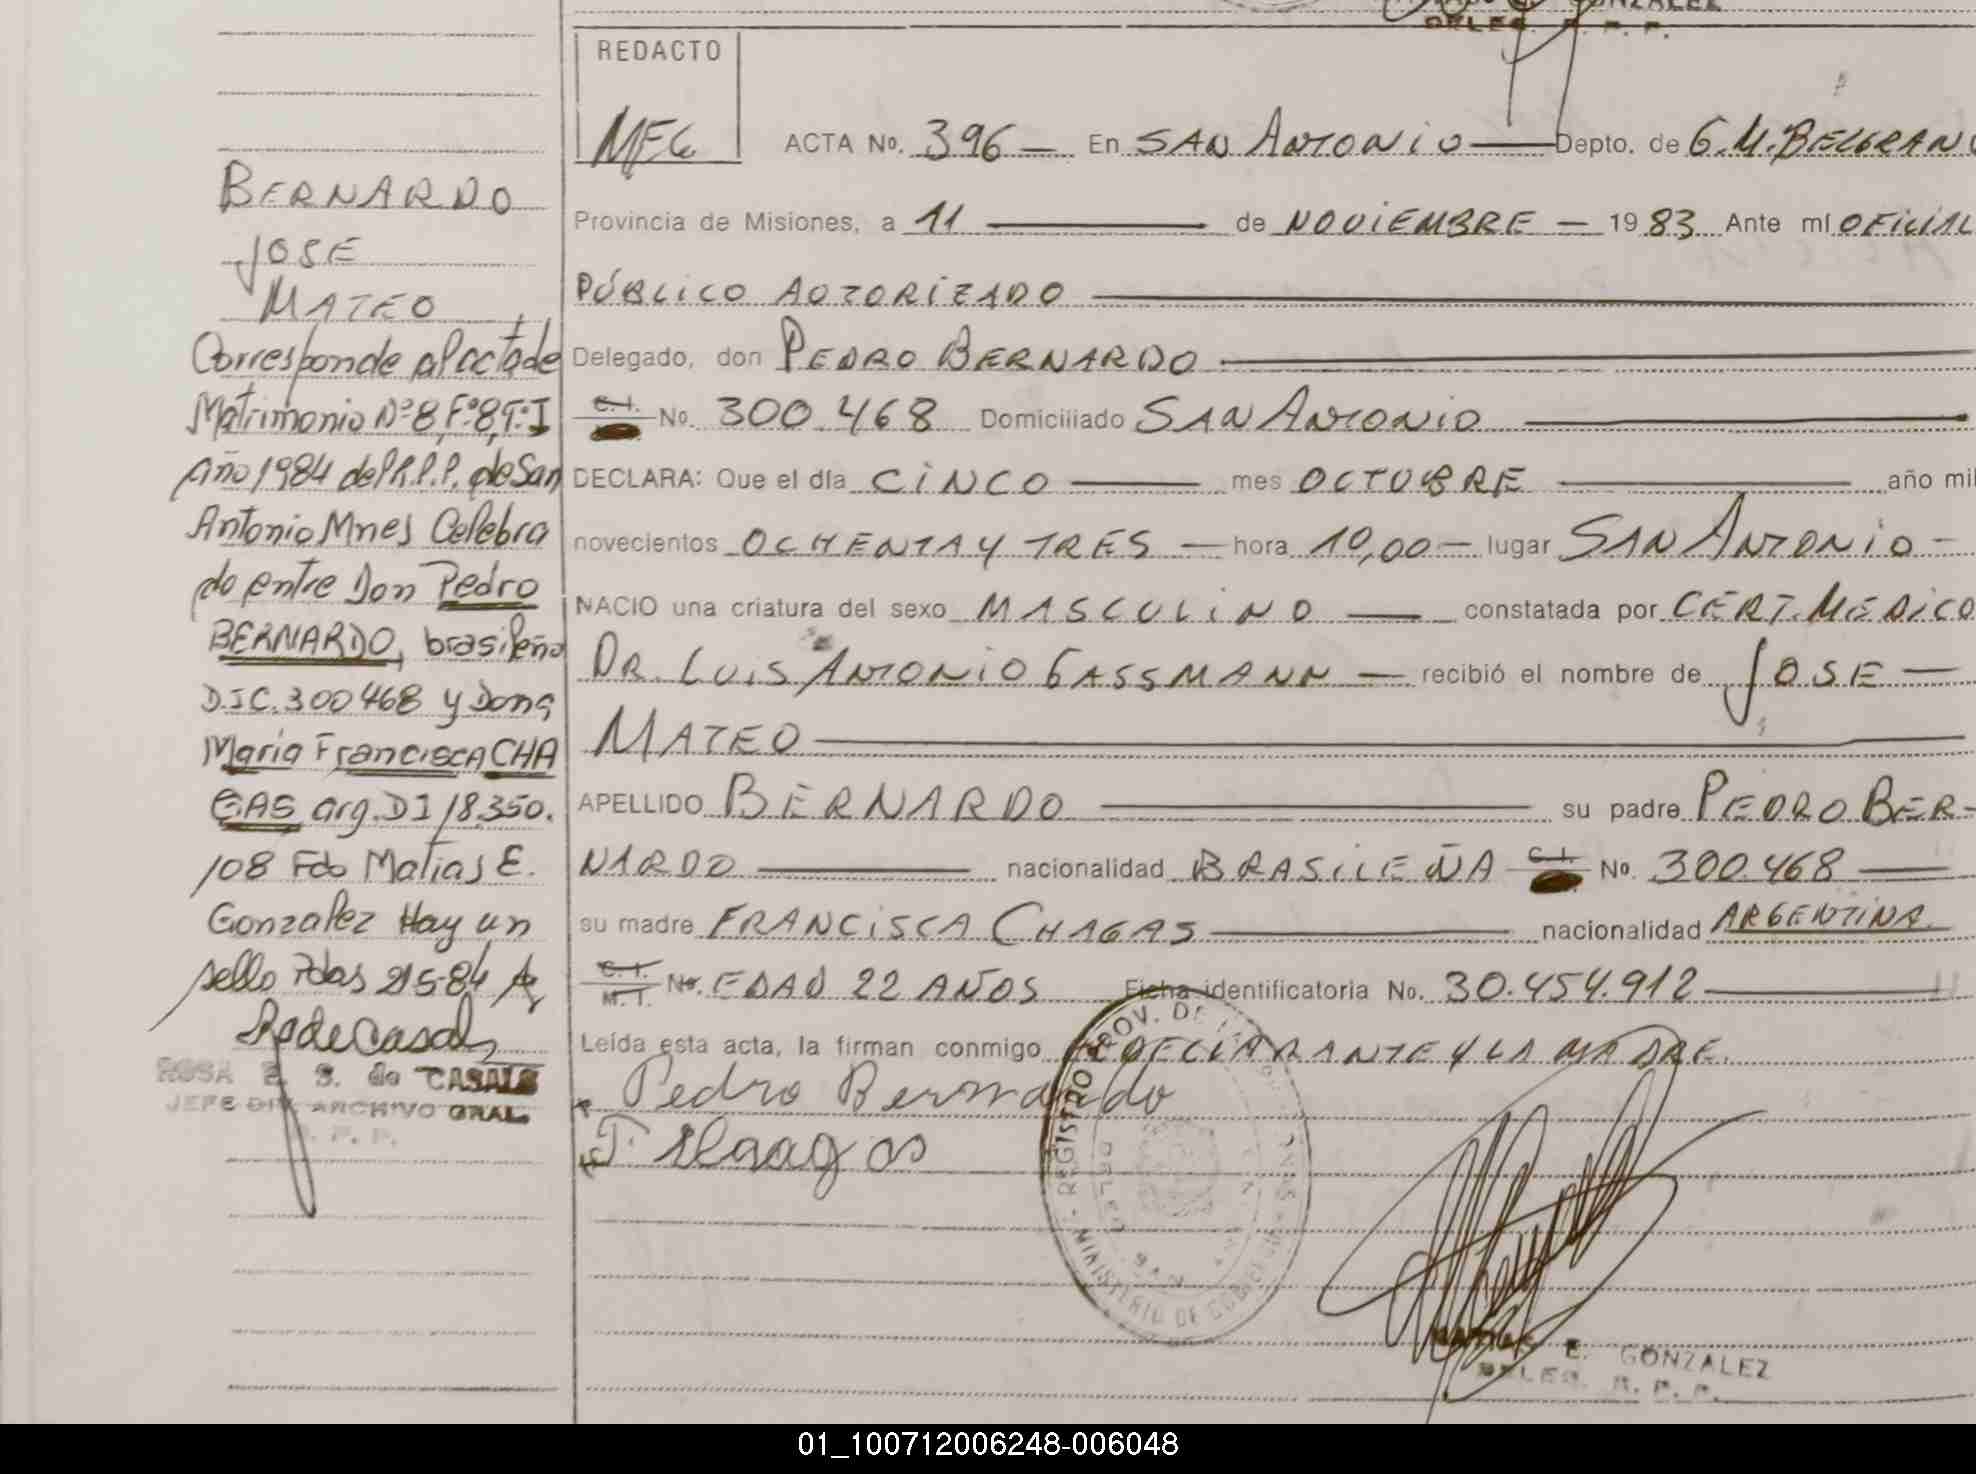 GONZALEZ
DELEG. R. P. P.
REDACTO
MEG
ACTA No. 396 — En SAN ANTONIO — Depto. de G.M.BELGRANO
Provincia de Misiones, a 11 — de NOVIEMBRE — 1983 Ante mí OFICIAL
PÚBLICO AUTORIZADO —
Delegado, don PEDRO BERNARDO —
C.I. No. 300.468 Domiciliado SAN ANTONIO —
DECLARA: Que el día CINCO — mes OCTUBRE — año mil
novecientos OCHENTA Y TRES — hora 10,00 — lugar SAN ANTONIO —
NACIO una criatura del sexo MASCULINO — constatada por CERT. MEDICO
DR. LUIS ANTONIO GASSMANN — recibió el nombre de JOSE —
MATEO —
APELLIDO BERNARDO — su padre PEDRO BER-
NARDO — nacionalidad BRASILEÑA C.I. No. 300.468 —
su madre FRANCISCA CHAGAS — nacionalidad ARGENTINA.
C.I. M.I. No. EDAD 22 AÑOS Ficha identificatoria No. 30.454.912 —
Leída esta acta, la firman conmigo EL DECLARANTE Y LA MADRE.
Pedro Bernardo
F. Chaagas
BERNARDO
JOSE
MATEO
Corresponde al acta de
Matrimonio Nº 8, Fº 8, Tº I
Año 1984 del R.P.P. de San
Antonio Mnes Celebra
do entre Don Pedro
BERNARDO, brasileño
D.I.C. 300468 y Dona
Maria Francisca CHA
GAS arg. DI 18.350.
108 Fdo Matias E.
Gonzalez Hay un
sello Pdas 21-5-84
R de Casals
ROSA E. S. de CASALS
JEFE DIV. ARCHIVO GRAL.
R. P. P.
REGISTRO PROV. DE LAS PERSONAS - MINISTERIO DE GOBIERNO -
DELEG. SAN ANTONIO
MATIAS E. GONZALEZ
DELEG. R. P. P.
01_100712006248-006048